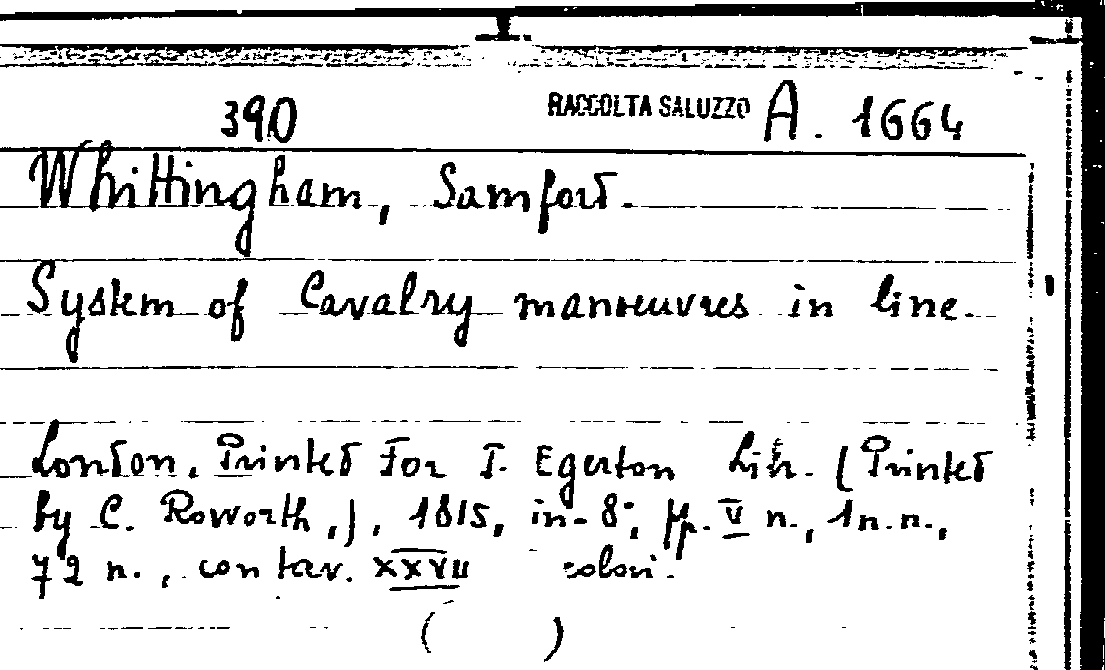 390 RACCOLTA SALUZZO A. 1664
Whittingham, Samford.
System of Cavalry manoeuvres in line.
London. Printed For T. Egerton Lib. (Printed
by C. Roworth,), 1815, in-8°, pp. V n., 1 n.n.,
72 n., con tav. XXVII colori.
( )